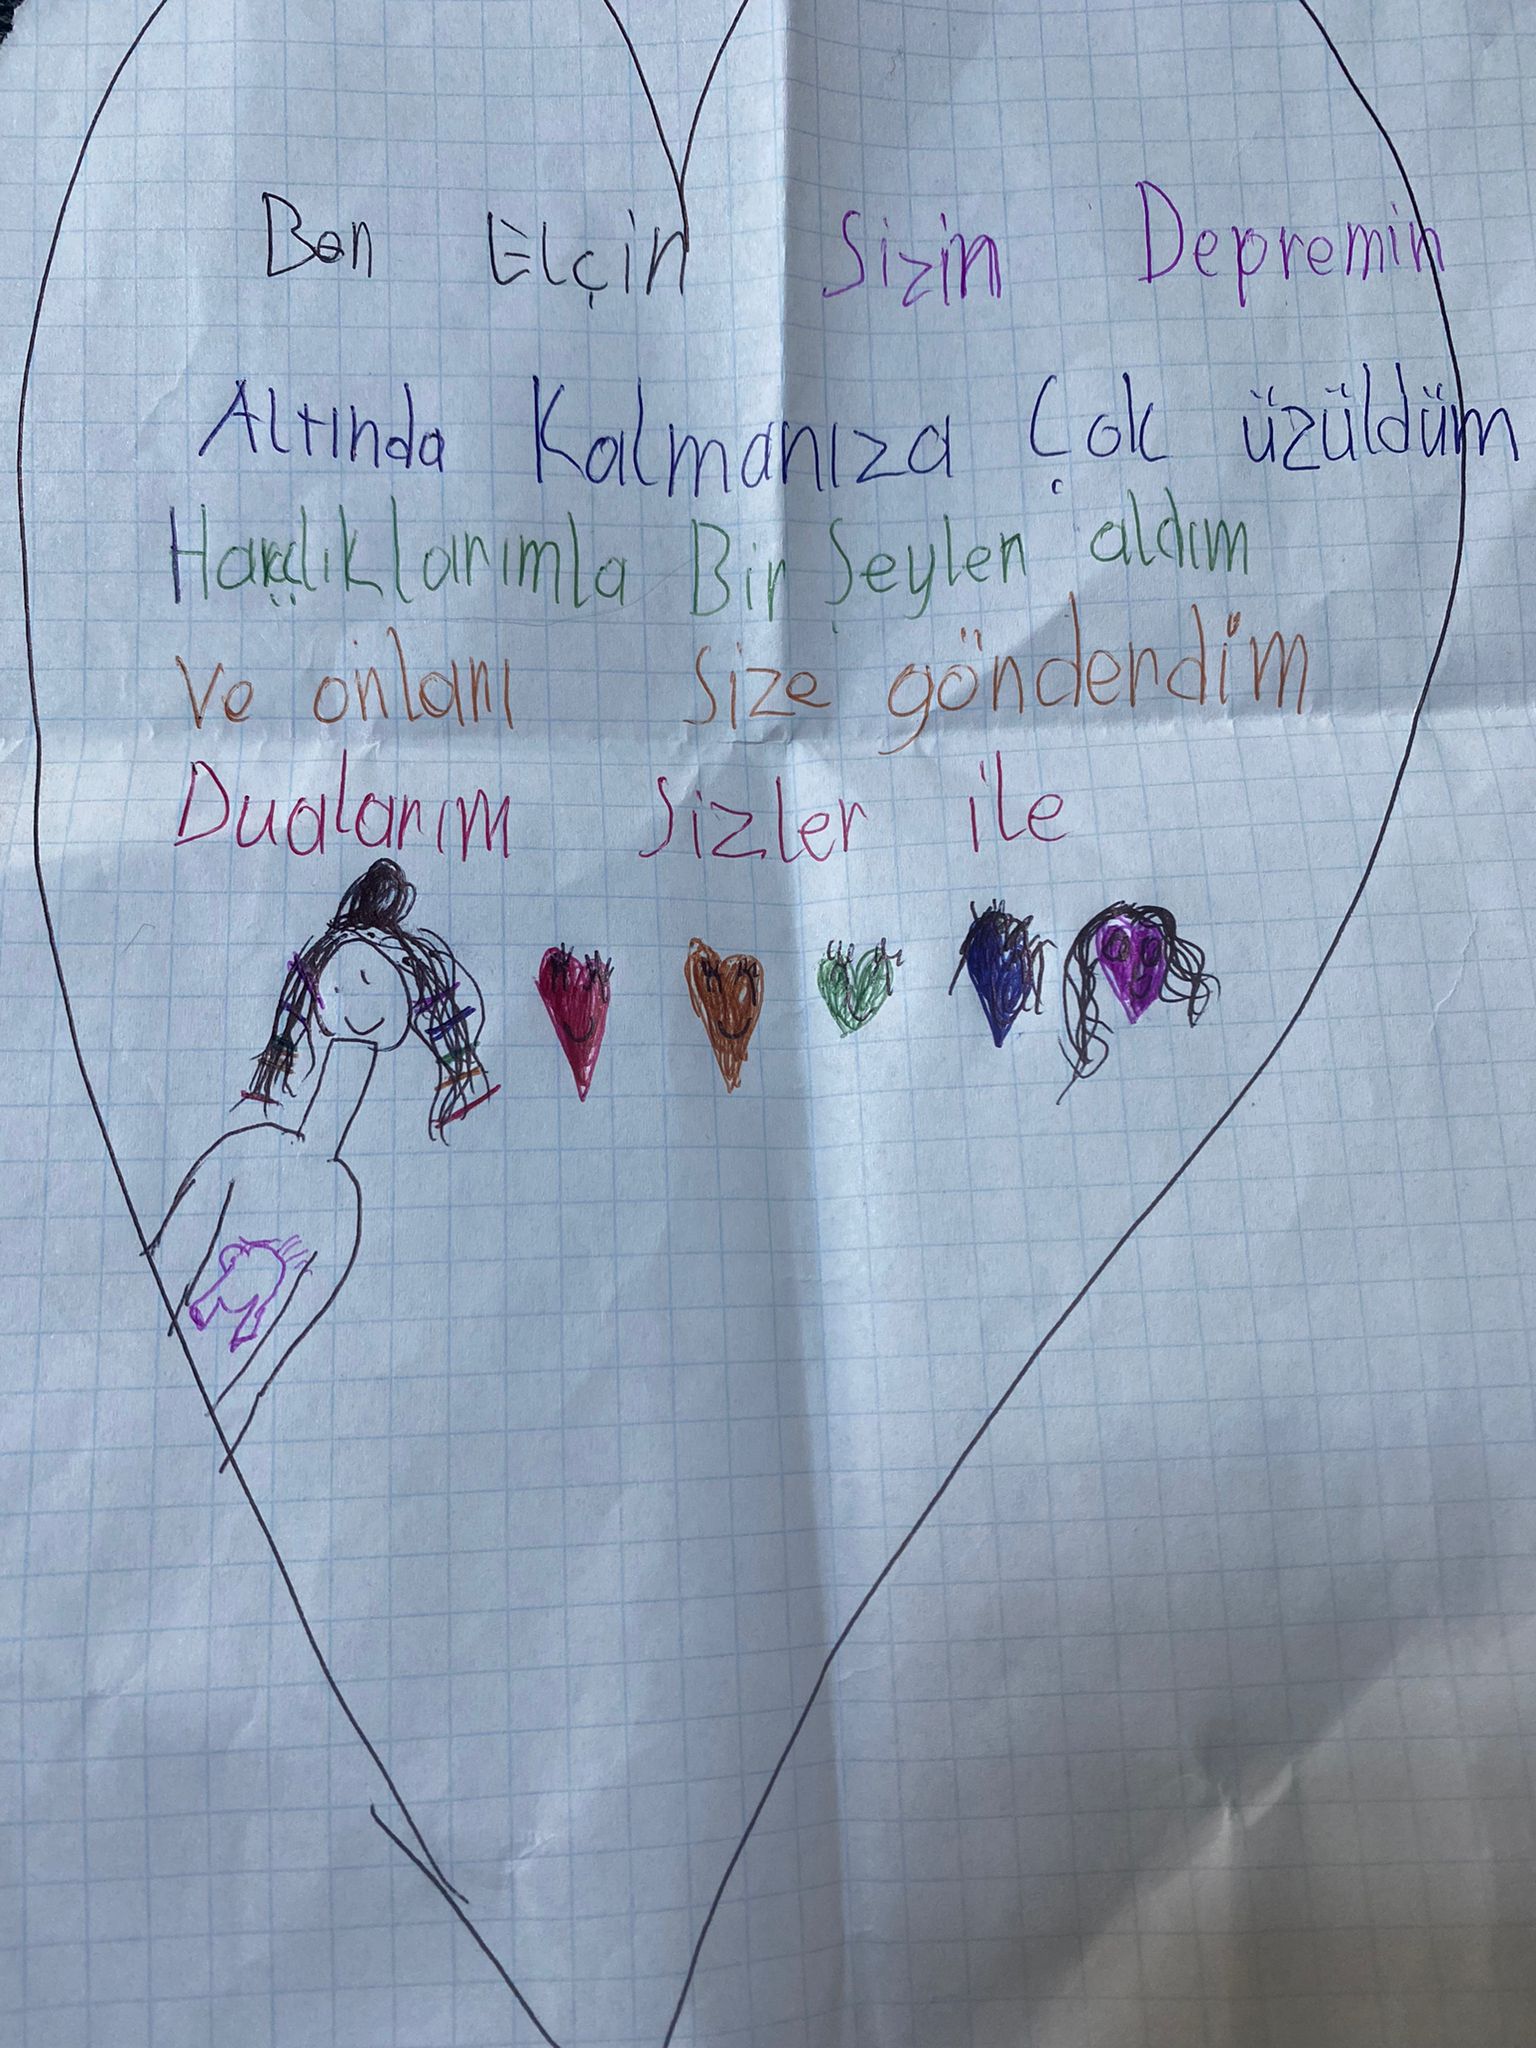 Ben Elçin Sizin Depremin
Altında Kalmanıza Çok üzüldüm
Harçlıklarımla Bir Şeyler aldım
Ve onları size gönderdim
Dualarım sizler ile